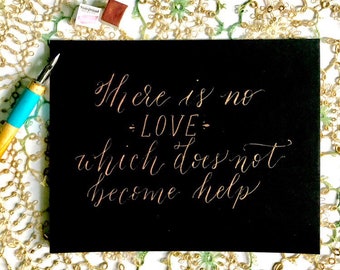 There is no
-LOVE-
which does not
become help